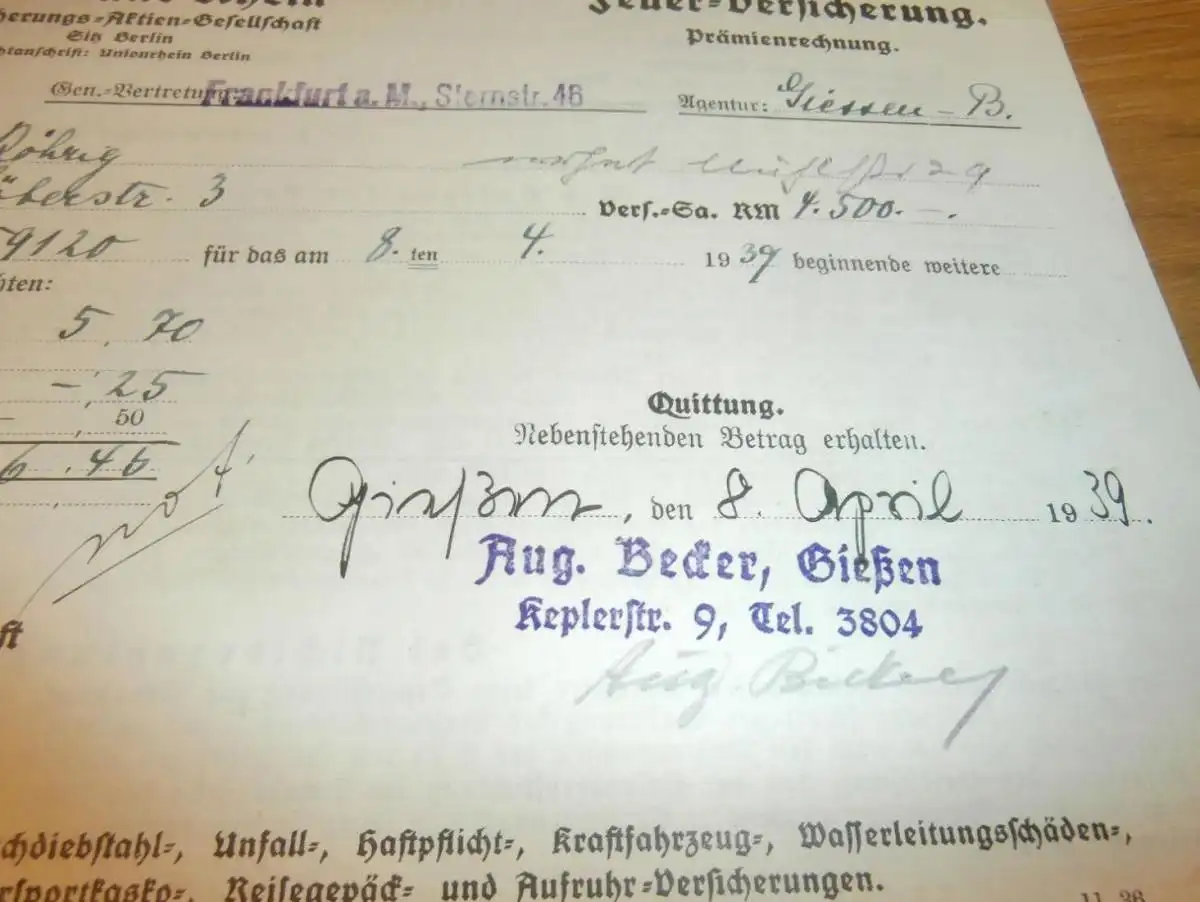 herungs-Aktien-Gesellschaft
Sitz Berlin
htanschrift: Unionrhein Berlin
Feuer-Versicherung.
Prämienrechnung.
Gen.-Vertretung: Frankfurt a. M., Sternstr. 46
Agentur: Giessen - B.
Röhrig wohnt 29
berstr. 3
Vers.-Sa. RM 4.500.-.
59120 für das am 8. ten 4. 1939 beginnende weitere
hten:
5,70
-,25
-,50
6.45
Quittung.
Nebenstehenden Betrag erhalten.
Gießen, den 8. April 1939.
Aug. Becker, Gießen
Keplerstr. 9, Tel. 3804
Aug. Becker
ft
chdiebstahl-, Unfall-, Haftpflicht-, Kraftfahrzeug-, Wasserleitungsschäden-,
rsportkasko-, Reisegepäck- und Aufruhr-Versicherungen.